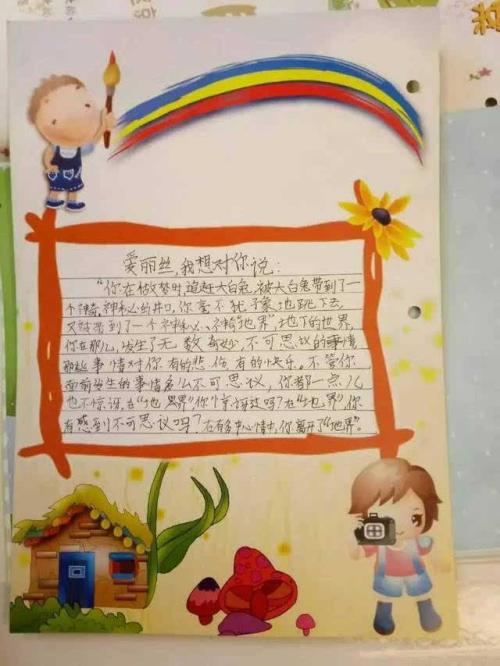 爱丽丝,我想对你说:
"你在做梦时追赶大白兔,被大白兔带到了一
个神秘的井口,你毫不犹豫地跳下去,
又被带到了一个神秘、神奇"地界",地下的世界,
你在那儿,发生了无数奇妙,不可思议的事情
那些事情对你有的悲伤有的快乐。不管你
面前发生的事情多么不可思议,你都一点儿
也不惊讶。在"地界",你惊讶过吗?在"地界",你
有感到不可思议吗?在有多中心情中,你离开了"地界"。